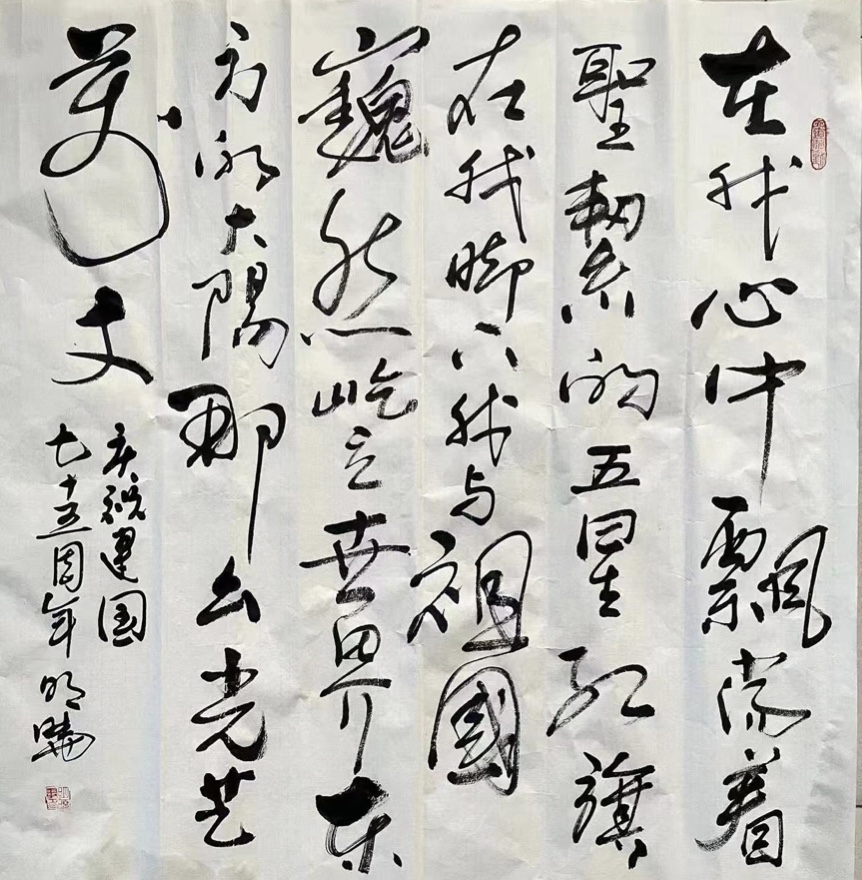 在我心中飄荡着
聖絜的五星红旗
在我脚下我与祖國
巍然屹立世界东
方的太陽那么光芒
萬丈
庆祝建国
七十五周年 明曉